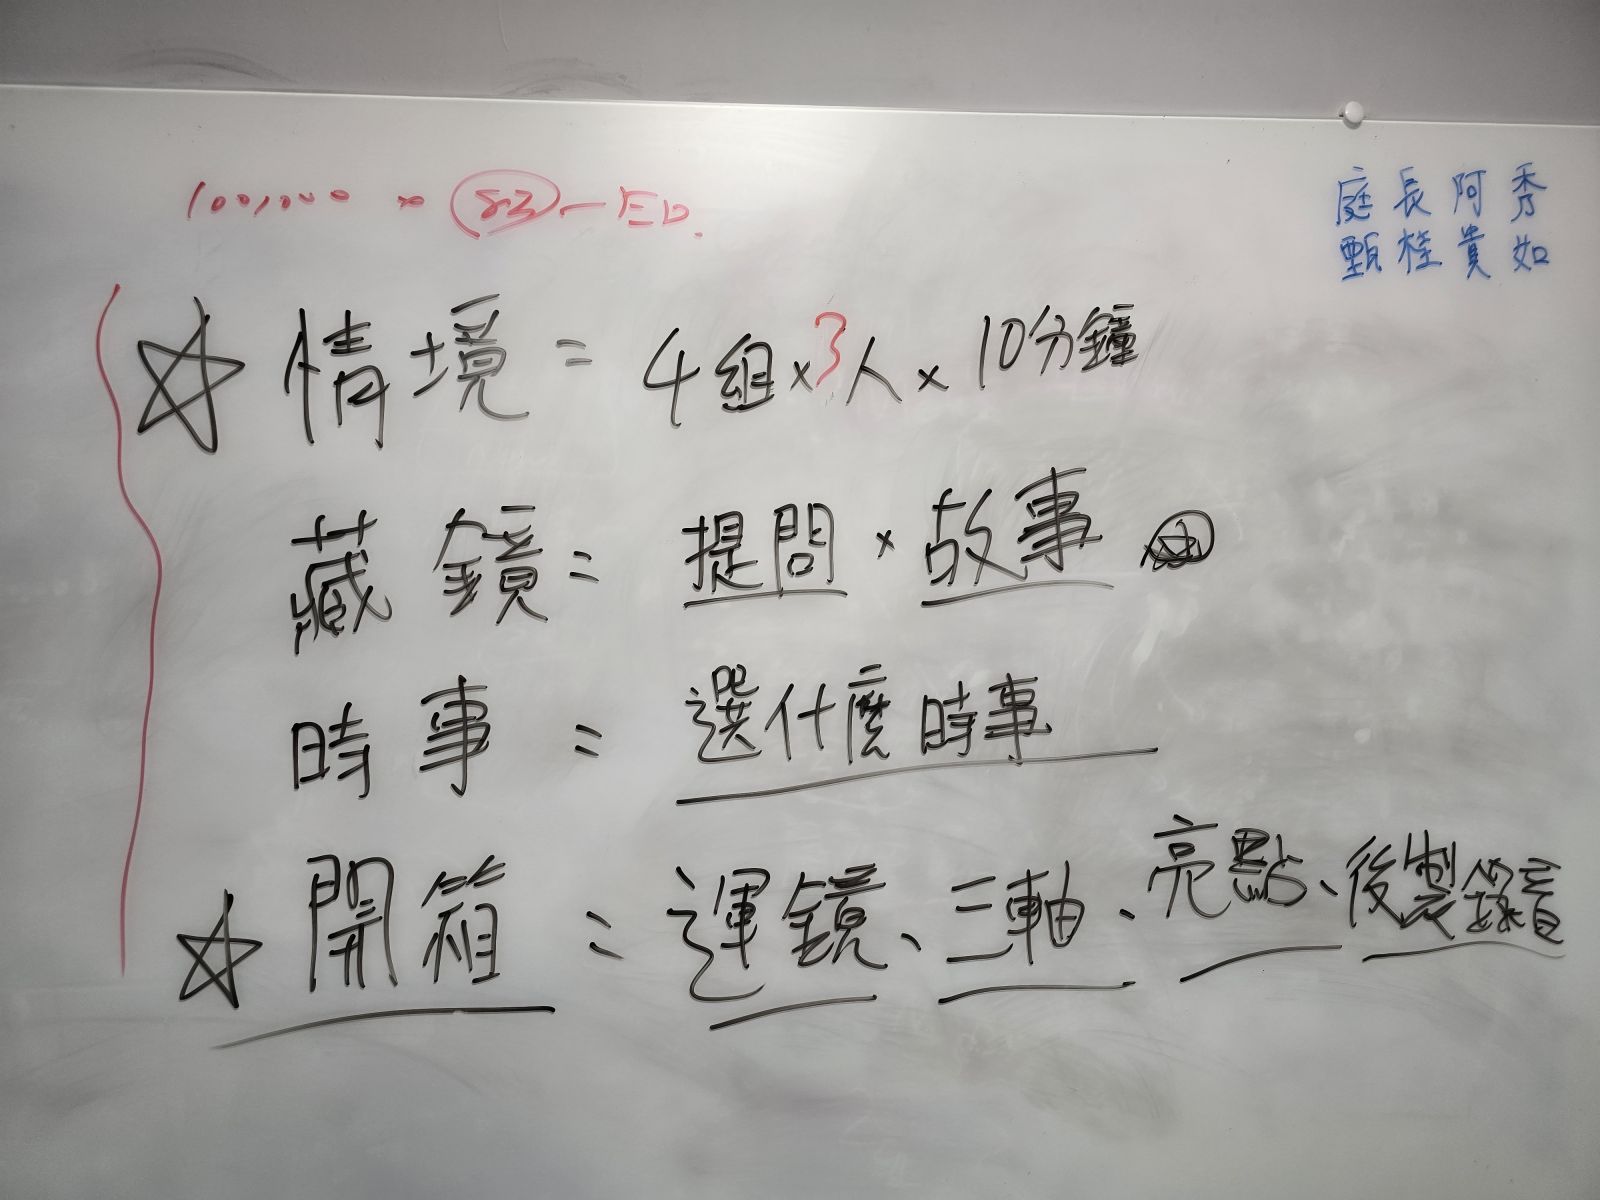 100,000
庭 長 阿 秀
甄 桂 貴 如
☆ 情境 = 4組×3人×10分鐘
藏鏡 = 提問×故事
時事 = 選什麼時事
☆ 開箱 = 運鏡、三軸、亮點、後製錄音